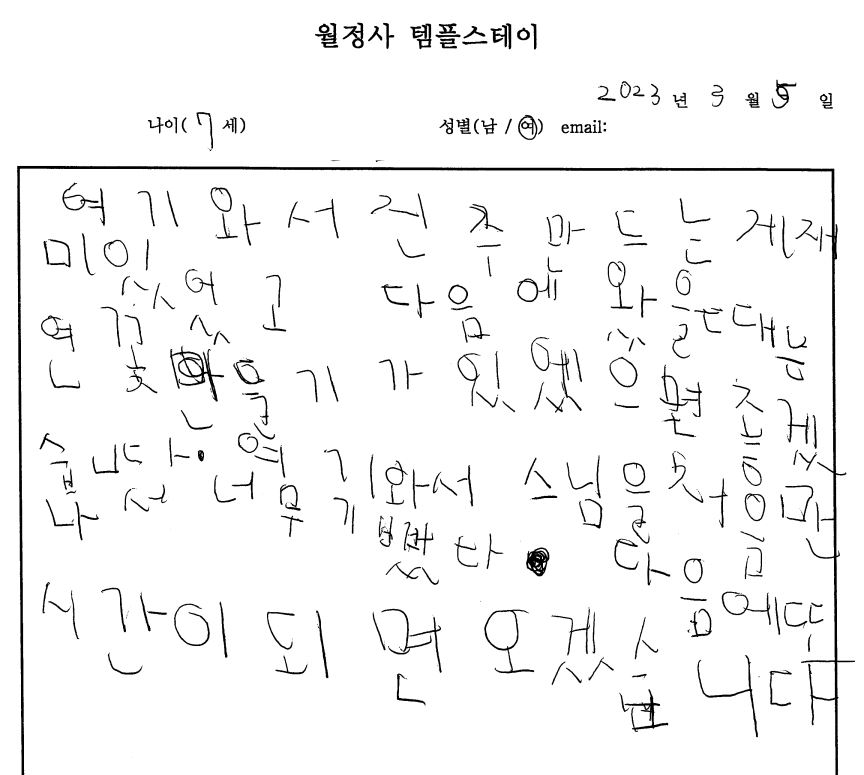 월정사 템플스테이
2023 년 3 월 5 일
나이( 7 세) 성별(남 / 여) email:
여기와서 진주만드는게재
미있었고 다음에 왔을때는
연꽃만들기가 있엤으면 좋겠
습니다. 여기와서 스님을 처음만
나서 너무 기뻤다. 다음에또
시간이되면 오겠습니다